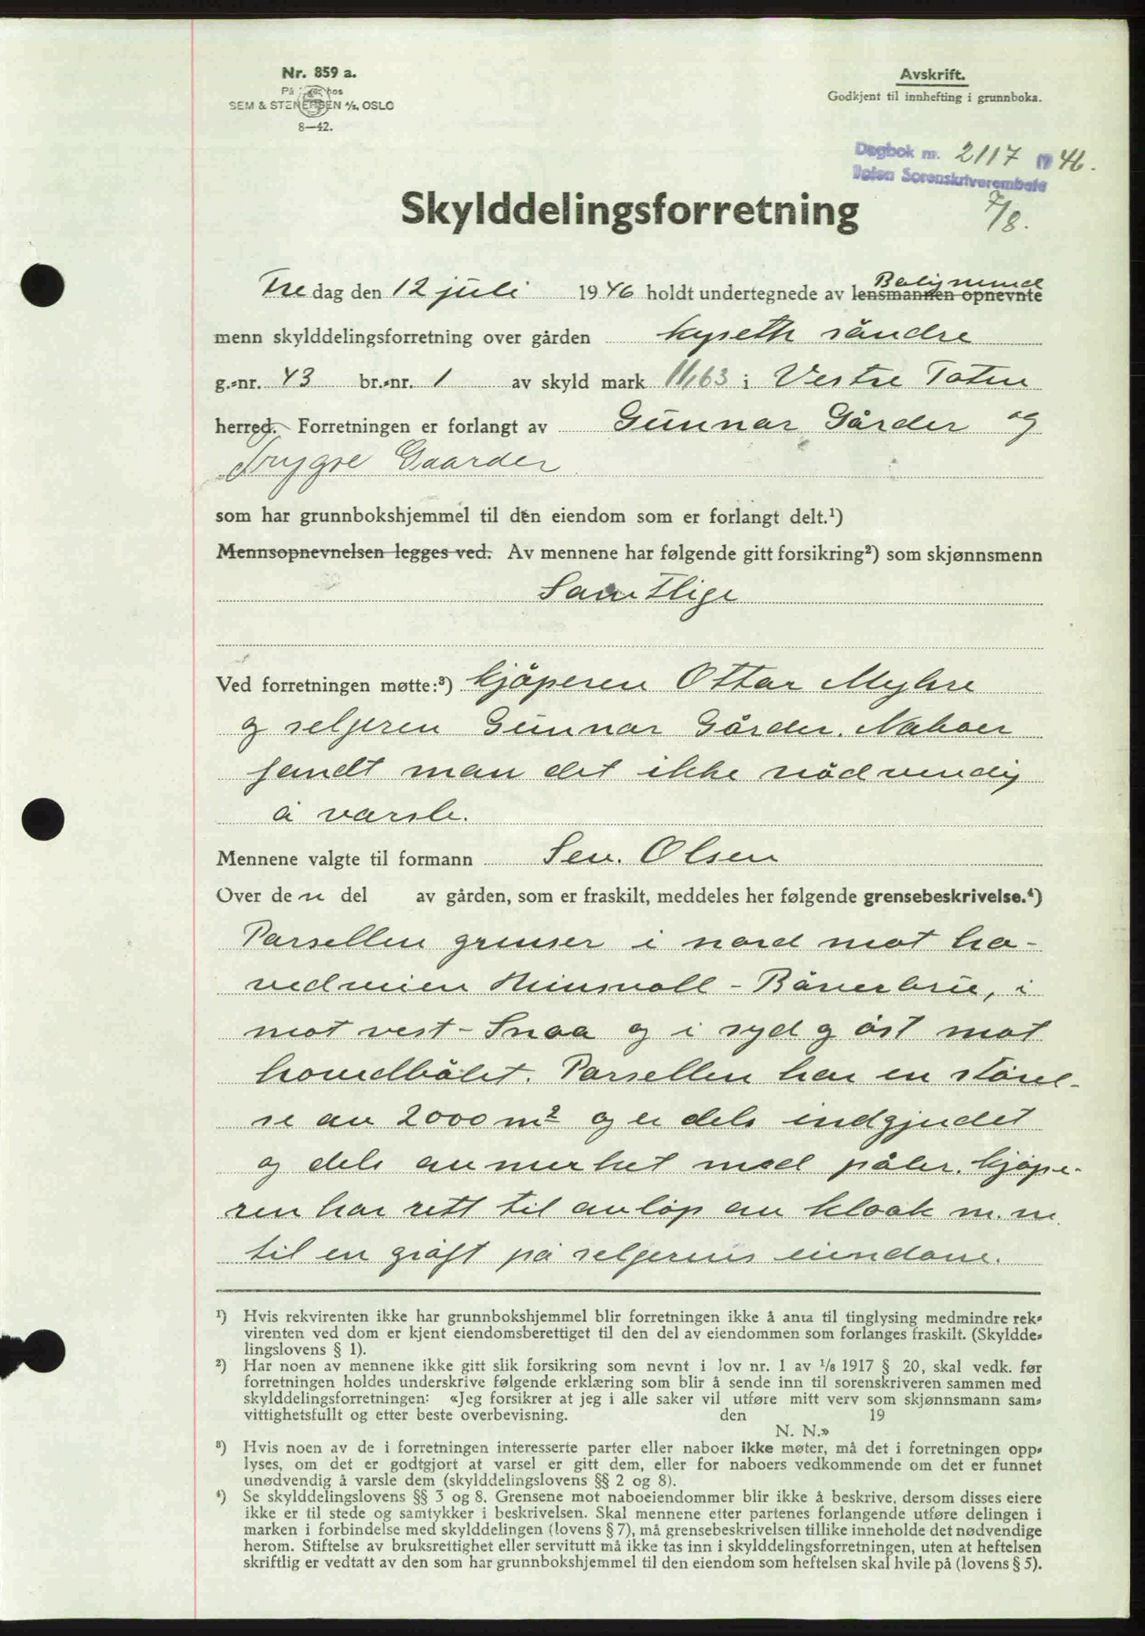 Nr. 859 a.
På lager hos
SEM & STENERSEN A/S, OSLO
8—42.
Avskrift.
Godkjent til innhefting i grunnboka.
Dagbok nr. 2117 1946.
Toten Sorenskriverembete
7/8.
Skylddelingsforretning
Fredag den 12 juli 1946 holdt undertegnede av lensmannen opnevnte
menn skylddelingsforretning over gården Kyseth søndre
g.-nr. 43 br.-nr. 1 av skyld mark 11,63 i Vestre Toten
herred. Forretningen er forlangt av Gunnar Gårder og
Trygve Gaarder
som har grunnbokshjemmel til den eiendom som er forlangt delt.¹)
Mennsopnevnelsen legges ved. Av mennene har følgende gitt forsikring²) som skjønnsmenn
Samtlige
Ved forretningen møtte:³) kjøperen Ottar Myhre
og selgeren Gunnar Gårder. Naboer
fandt man det ikke nødvendig
å varsle.
Mennene valgte til formann Sev. Olsen
Over den del av gården, som er fraskilt, meddeles her følgende grensebeskrivelse.⁴)
Parsellen grenser i nord mot ho-
vedveien Reinsvoll - Båverbru, i
mot vest - Snaa og i syd og øst mot
hovedbølet. Parsellen har en størrel-
se av 2000 m² og er dels indgjerdet
og dels avmerket med påler. Kjøpe-
ren har rett til avløp av kloak m.m.
til en grøft på selgerens eiendom.
¹) Hvis rekvirenten ikke har grunnbokshjemmel blir forretningen ikke å anta til tinglysing medmindre rek-
virenten ved dom er kjent eiendomsberettiget til den del av eiendommen som forlanges fraskilt. (Skyldde-
lingslovens § 1).
²) Har noen av mennene ikke gitt slik forsikring som nevnt i lov nr. 1 av 1/8 1917 § 20, skal vedk. før
forretningen holdes underskrive følgende erklæring som blir å sende inn til sorenskriveren sammen med
skylddelingsforretningen: «Jeg forsikrer at jeg i alle saker vil utføre mitt verv som skjønnsmann sam-
vittighetsfullt og etter beste overbevisning. den 19
N. N.»
³) Hvis noen av de i forretningen interesserte parter eller naboer ikke møter, må det i forretningen opp-
lyses, om det er godtgjort at varsel er gitt dem, eller for naboers vedkommende om det er funnet
unødvendig å varsle dem (skylddelingslovens §§ 2 og 8).
⁴) Se skylddelingslovens §§ 3 og 8. Grensene mot naboeiendommer blir ikke å beskrive, dersom disses eiere
ikke er til stede og samtykker i beskrivelsen. Skal mennene etter partenes forlangende utføre delingen i
marken i forbindelse med skylddelingen (lovens § 7), må grensebeskrivelsen tillike inneholde det nødvendige
herom. Stiftelse av bruksrettighet eller servitutt må ikke tas inn i skylddelingsforretningen, uten at heftelsen
skriftlig er vedtatt av den som har grunnbokshjemmel til den eiendom som heftelsen skal hvile på (lovens § 5).